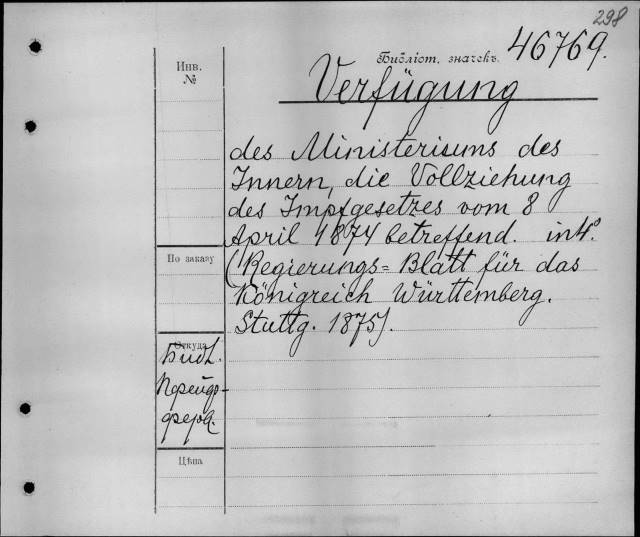 298
Библіот. значекъ. 46769.
Инв.
№
Verfügung
des Ministeriums des
Innern, die Vollziehung
des Impfgesetzes vom 8
April 1874 betreffend. in 4°.
По заказу
(Regierungs=Blatt für das
Königreich Württemberg.
Stuttg. 1875).
Откуда
Библ.
Цѣна